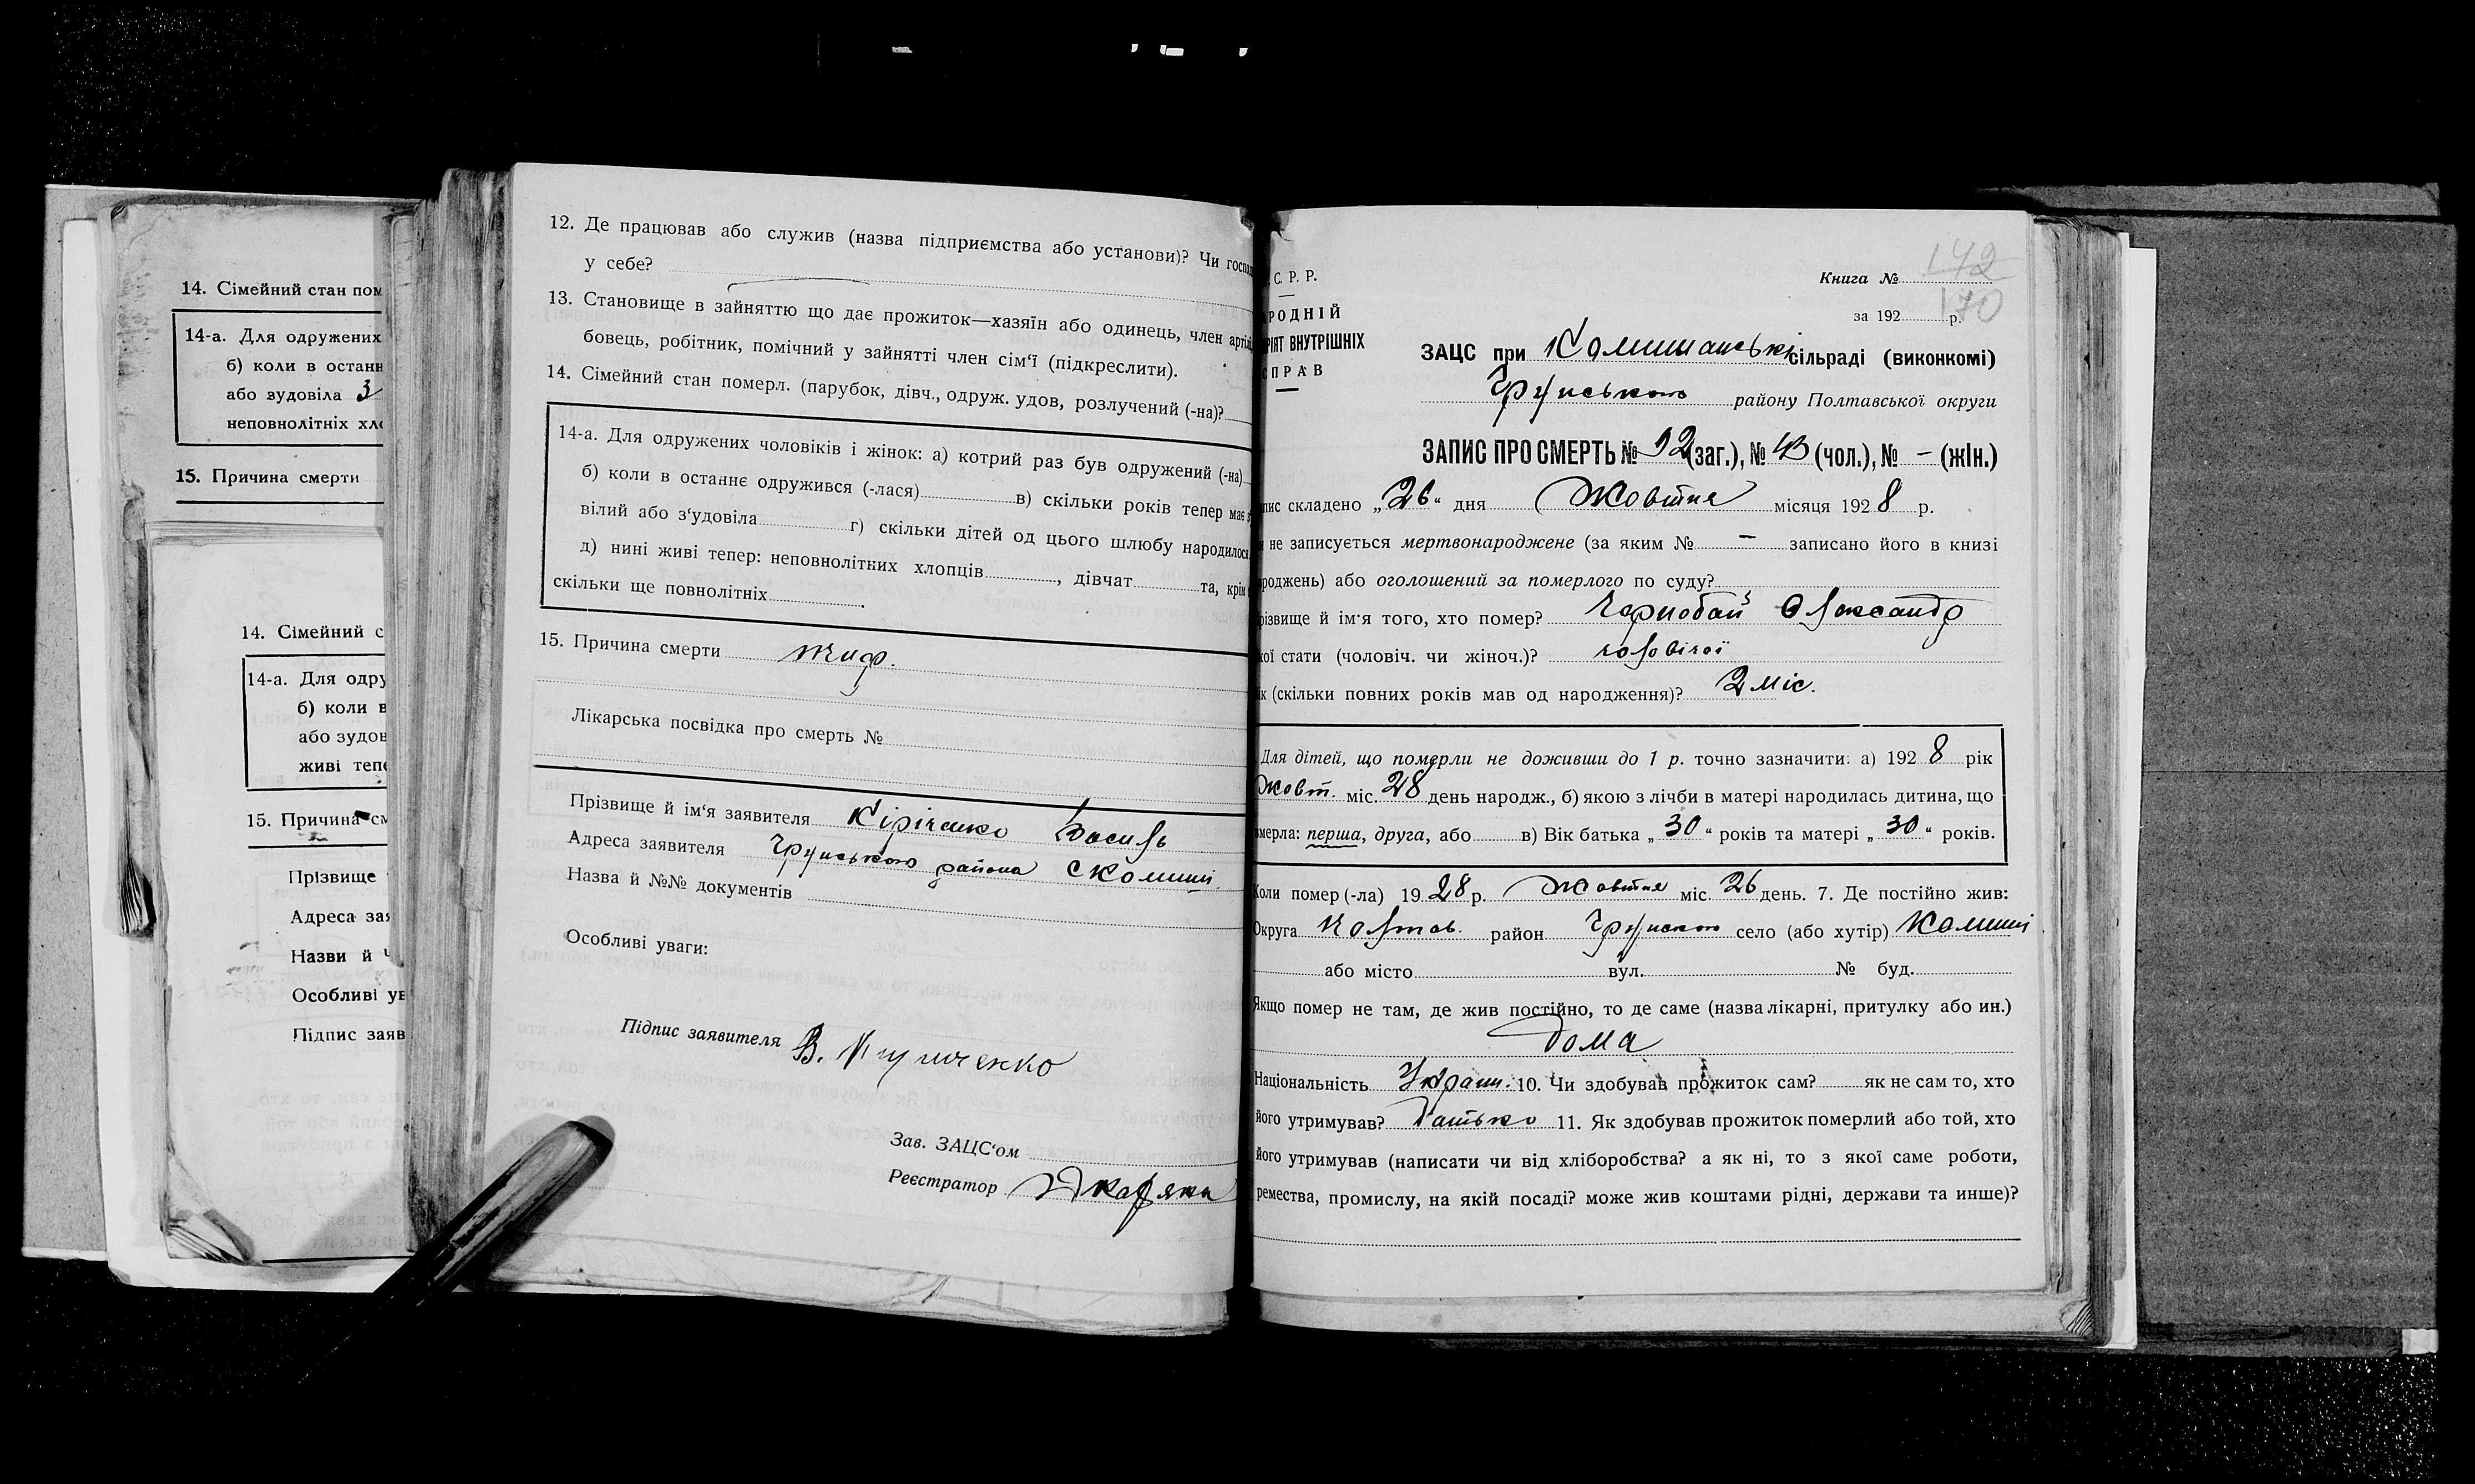 14. Сімейний стан пом
14-а. Для одружених
б) коли в останн
або зудовіла 3
неповнолітніх хло
15. Причина смерти
14. Сімейний с
14-а. Для одру
б) коли в
або зудов
живі тепе
15. Причина см
Прізвище
Адреса зая
Назви й
Особливі ув
Підпис заяв
12. Де працював або служив (назва підприємства або установи)? Чи господ
у себе?
13. Становище в зайняттю що дає прожиток—хазяїн або одинець, член артілі,
бовець, робітник, помічний у зайнятті член сім'ї (підкреслити).
14. Сімейний стан померл. (парубок, дівч., одруж. удов, розлучений (-на)?
14-а. Для одружених чоловіків і жінок: а) котрий раз був одружений (-на)
б) коли в останнє одружився (-лася) в) скільки років тепер має з
вілий або з'удовіла г) скільки дітей од цього шлюбу народилося
д) нині живі тепер: неповнолітних хлопців, дівчат та, крім
скільки ще повнолітніх.
15. Причина смерти тиф.
Лікарська посвідка про смерть №
Прізвище й ім'я заявителя Кіріченко Василь
Адреса заявителя Грунського района с Комиші
Назва й №№ документів
Особливі уваги:
Підпис заявителя В. Кириченко
Зав. ЗАЦС'ом
Реєстратор
142
170
С. Р. Р.
Книга №
РОДНІЙ
за 192 р.
РІЯТ ВНУТРІШНІХ
СПРАВ
ЗАЦС при Комишанські сільраді (виконкомі)
Грунського району Полтавської округи
ЗАПИС ПРО СМЕРТЬ № 92 (заг.), № 43 (чол.), № – (жін.)
пис складено „26“ дня Жовтня місяця 1928 р.
и не записується мертвонароджене (за яким № – записано його в книзі
роджень) або оголошений за померлого по суду?
різвище й ім'я того, хто помер? Чорнобай Олександр
кої стати (чоловіч. чи жіноч.)? чоловічої
ік (скільки повних років мав од народження)? 2 міс.
Для дітей, що померли не доживши до 1 р. точно зазначити: а) 1928 рік
Жовт. міс. 28 день народж., б) якою з лічби в матері народилась дитина, що
вмерла: перша, друга, або в) Вік батька „30“ років та матері „30“ років.
Коли помер (-ла) 1928 р. Жовтня міс. 26 день. 7. Де постійно жив:
Округа Полтав. район Грунского село (або хутір) Комиші
або місто вул. № буд.
Якщо помер не там, де жив постійно, то де саме (назва лікарні, притулку або ин.)
Дома
Національність Украин. 10. Чи здобував прожиток сам? як не сам то, хто
його утримував? Батько 11. Як здобував прожиток померлий або той, хто
його утримував (написати чи від хліборобства? а як ні, то з якої саме роботи,
ремества, промислу, на якій посаді? може жив коштами рідні, держави та инше)?